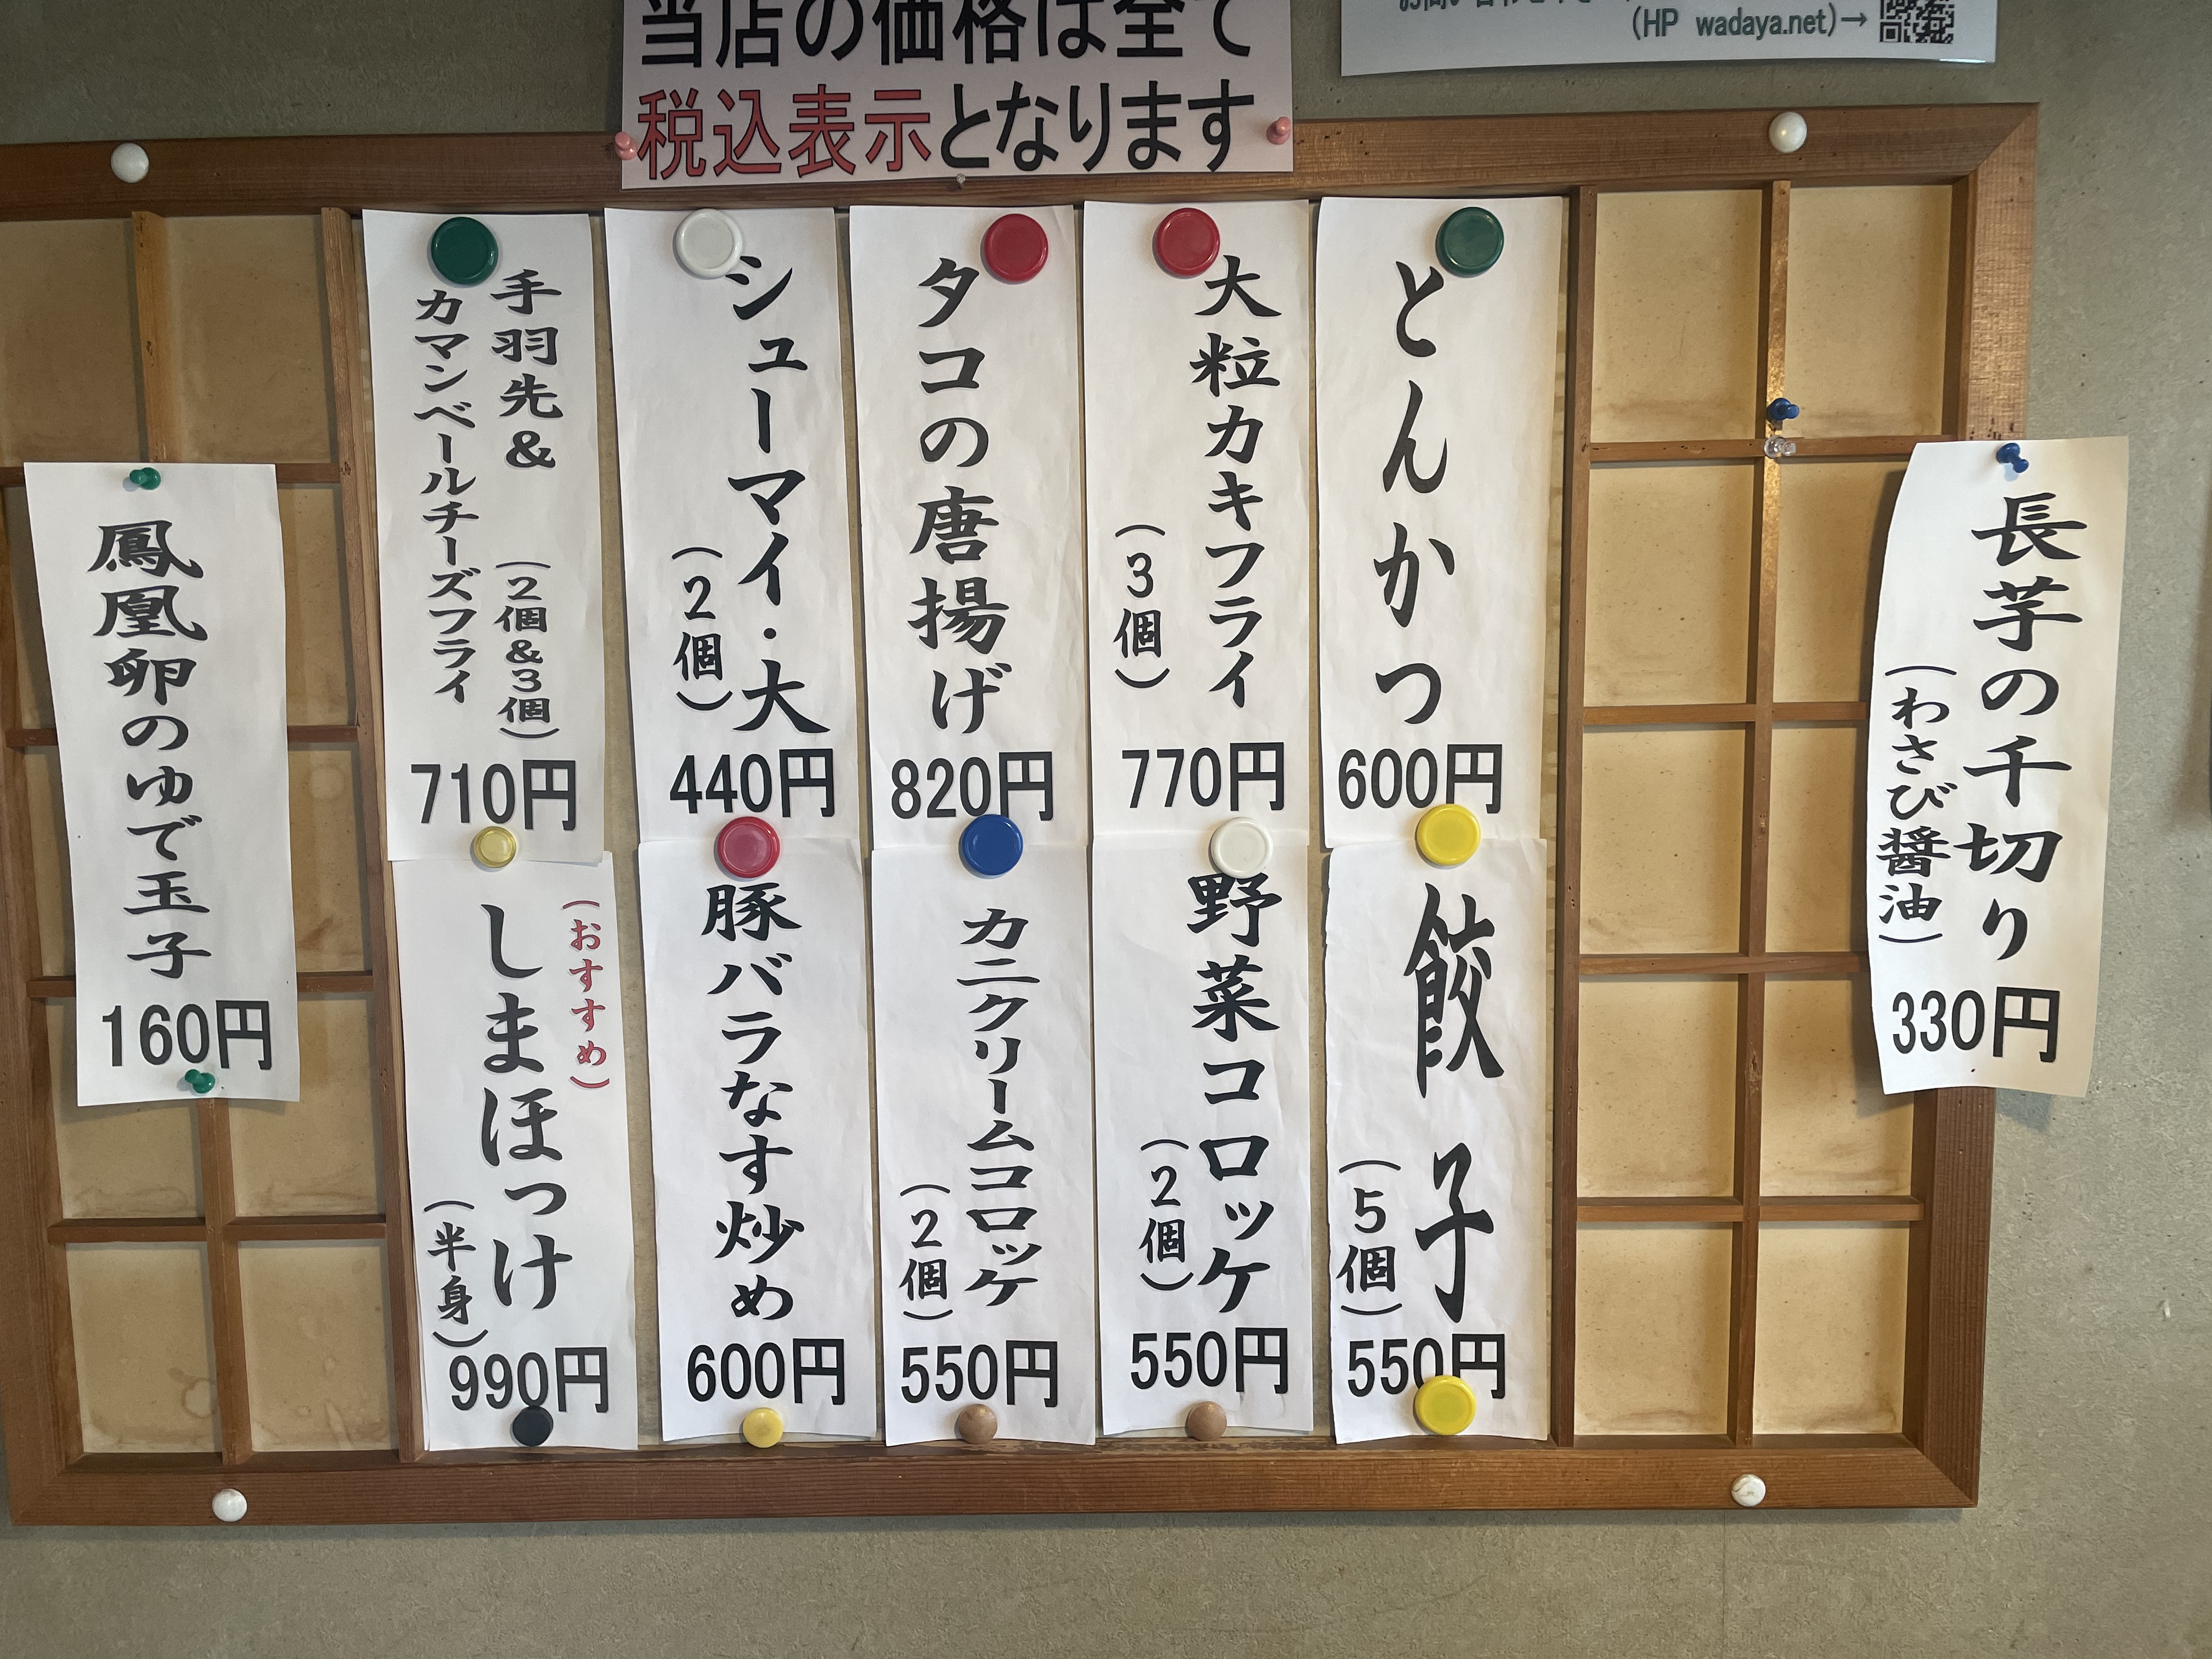 当店の価格は全て
税込表示となります
(HP wadaya.net)→
長芋の千切り
(わさび醤油)
330円
とんかつ
600円
大粒カキフライ
(3個)
770円
タコの唐揚げ
820円
シューマイ・大
(2個)
440円
手羽先&
(2個&3個)
カマンベールチーズフライ
710円
餃子
(5個)
550円
野菜コロッケ
(2個)
550円
カニクリームコロッケ
(2個)
550円
豚バラなす炒め
600円
(おすすめ)
しまほっけ
(半身)
990円
鳳凰卵のゆで玉子
160円